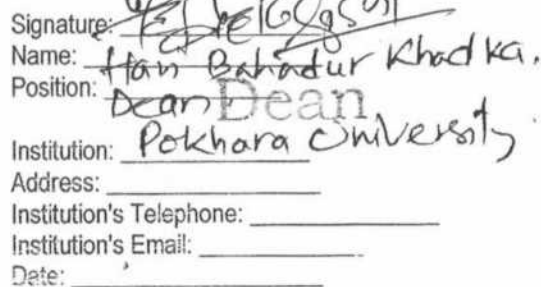 Signature:
Name: Hari Bahadur Khadka.
Position: Dean Dean
Institution: Pokhara University
Address:
Institution's Telephone:
Institution's Email:
Date: